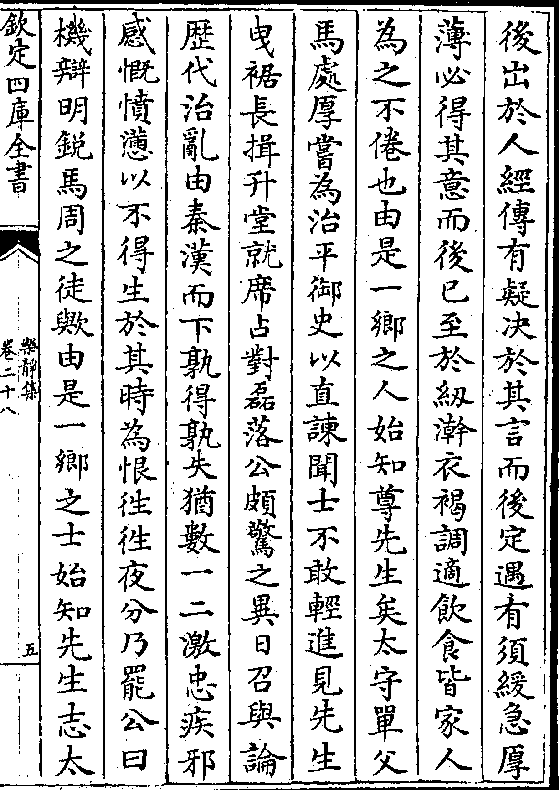 後出於人經傳有疑决於其言而後定遇有須緩急厚
薄必得其意而後已至於紉澣衣褐調適飲食皆家人
為之不倦也由是一鄉之人始知尊先生矣太守單父
馬處厚嘗為治平御史以直諫聞士不敢輕進見先生
曵裾長揖升堂就席占對磊落公頗驚之異日召與論
歴代治亂由秦漢而下孰得孰失猶數一二激忠疾邪
感慨憤懣以不得生於其時為恨往往夜分乃罷公曰
機辯明銳馬周之徒歟由是一鄉之士始知先生志太
欽定四庫全書
樂静集
卷二十八
五